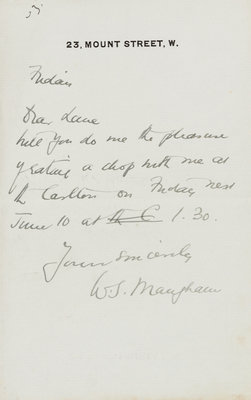 23, MOUNT STREET, W.
Friday
Dear Lane
will you do me the pleasure
of eating a chop with me at
the Carlton on Friday next
June 10 at the C 1.30.
Yours sincerely
W.S. Maugham